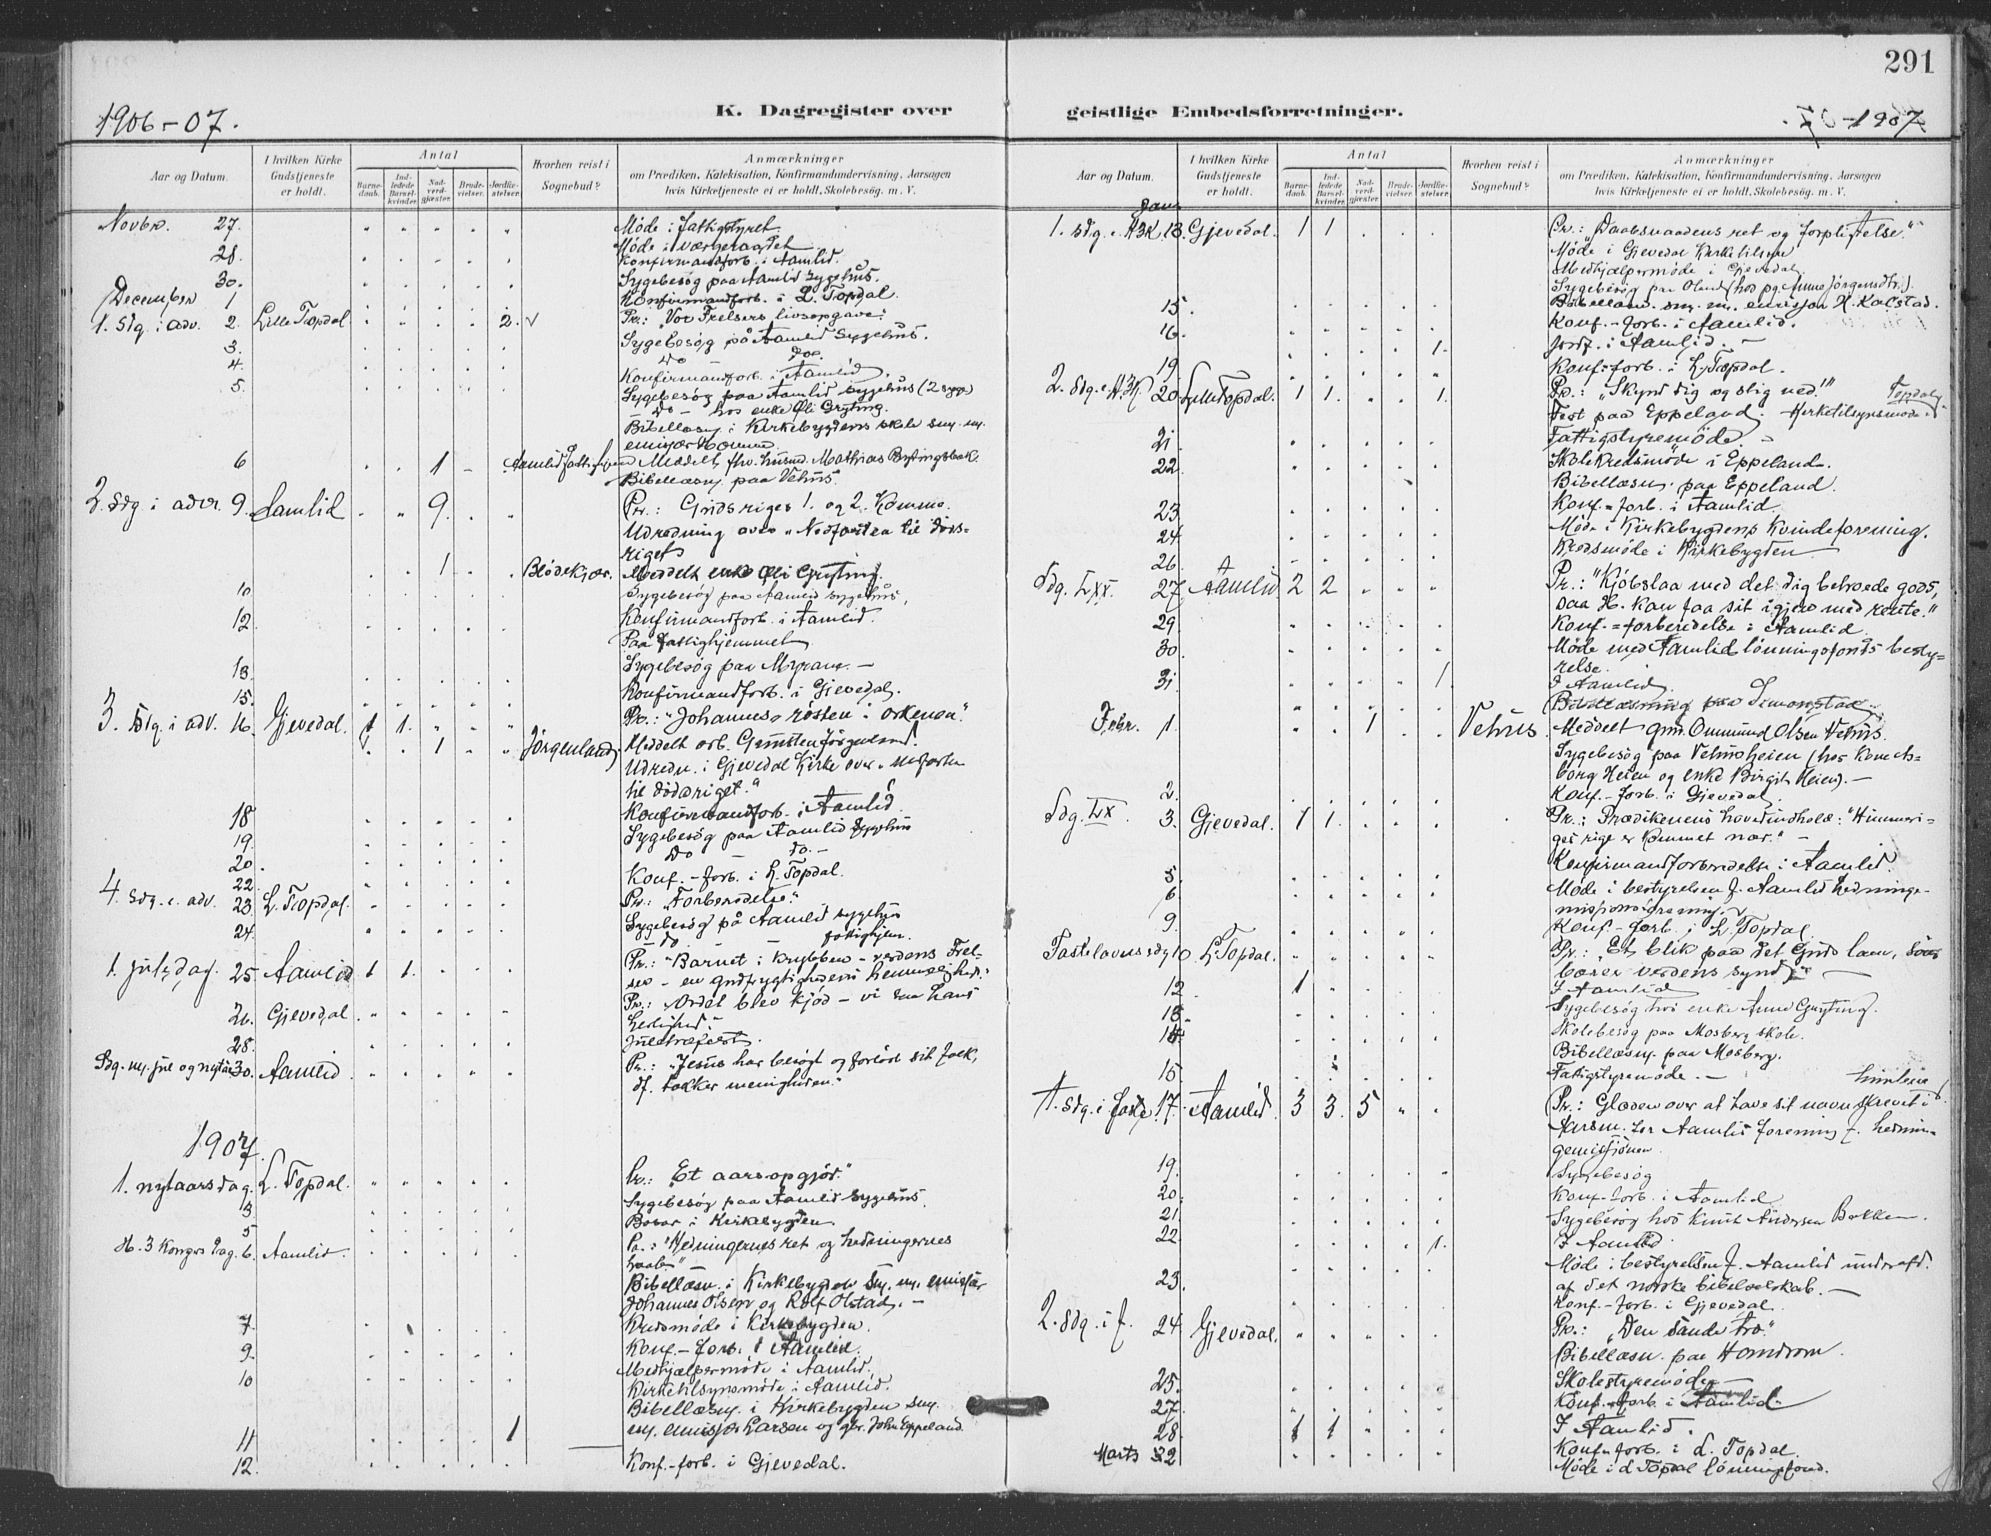 291
1906-07.
K. Dagregister over geistlige Embedsforretninger.
1907
Aar og Datum.
I hvilken Kirke Gudstjeneste er holdt.
Antal
Barnedaab.
Indledede Barselkvinder.
Nadverdgjæster.
Brudevielser.
Jordfæstelser.
Hvorhen reist i Sognebud?
Anmærkninger
om Prædiken, Katekisation, Konfirmandundervisning, Aarsagen hvis Kirketjeneste ei er holdt, Skolebesøg. m. V.
Novbr. 27. Møde i fattigstyret
Møde i værgeraadet
28. Konfirmandforb. i Aamlid.
30. Sygebesøg paa Aamlid sygehus.
December 1 Konfirmandforb. i L. Topdal.
1. Sdg. i adv. 2. Lille Topdal 2. Pr.: "Vor Frelsers livsopgave."
3. Sygebesøg på Aamlid sygehus.
4. do do.
5. Konfirmandforb. i Aamlid.
Sygebesøg paa Aamlid sygehus (2 syge)
- do - hos enke Oli Gryting.
Bibellæsn. i Kirkebygdens skole sm. m.
emissær
6 1 Aamlid fattighjem Meddelt fhv. husmd. Mathias
Bibellæsn. paa Vehus.
2. Sdg i adv. 9. Aamlid 9. Pr.: Guds riges 1. og 2. Komme.
Udredning over "Nedfarten til døds-
riget"
1 Blödekjær. Meddelt enke Oli Gryting.
10 Sygebesøg paa Aamlid sygehus,
12 Konfirmandforb. i Aamlid.
Paa fattighjemmet
13. Sygebesøg paa Myrane. -
15. Konfirmandforb. i Gjevedal.
3. Sdg. i adv. 16. Gjevedal 1 1. Pr.: "Johannes, røsten i ørkenen."
1 Jörgenland Meddelt arb. Jörgenland.
Udredn. i Gjevedal Kirke over "nedfarten
til dödsriget."
18 Konfirmandforb. i Aamlid.
19. Sygebesøg paa Aamlid sygehus
20. do - do. -
22. Konf.-forb. i L. Topdal.
4. Sdg. i. adv. 23. L. Topdal. Pr.: "Forberedelse."
24. Sygebesøg på Aamlid sygehus
do fattighjem.
1. juledag. 25. Aamlid 1 1. Pr.: "Barnet i krybben - verdens Frel-
ser - en gudfrygtighedens hemmelighed."
26. Gjevedal Pr.: "Ordet blev kjød - vi saa hans
herlighed."
28. Juletræfest.
Sdg. m. jul og nytår 30. Aamlid Pr.: "Jesus har besøgt og forløst sit folk,
df. takker menigheden."
1907.
1. nytaarsdag. L. Topdal. Pr.: "Et aarsopgjør."
3 Sygebesøg paa Aamlid sygehus.
5 Basar i Kirkebygden
H. 3 Kongers dag. 6. Aamlid. Pr.: "Hedningernes ret og hedningernes
haab"
Bibellæsn. i Kirkebygden sm. m. emissær
Johannes Olsen og Rolf Olstad. -
7. Kredsmøde i Kirkebygden.
9. Konf.-forb. i Aamlid.
10 Medhjælpermøde i Aamlid.
Kirketilsynsmøde i Aamlid.
Bibellæsn. i Kirkebygden sm.
m. emissær Larsen og John Eppeland.
11 1
12. Konf.-forb. i Gjevedal.
Aar og Datum.
I hvilken Kirke Gudstjeneste er holdt.
Antal
Barnedaab.
Indledede Barselkvinder.
Nadverdgjæster.
Brudevielser.
Jordfæstelser.
Hvorhen reist i Sognebud?
Anmærkninger
om Prædiken, Katekisation, Konfirmandundervisning, Aarsagen hvis Kirketjeneste ei er holdt, Skolebesøg. m. V.
Jan.
1. Sdg. e. H3K 13. Gjevedal. 1 1 Pr.: "Daabsnaadens ret og forpligtelse."
Møde i Gjevedal Kirketilsyn
Medhjælpermøde i Gjevedal
Sygebesøg paa Oland (hos pg. Anne Jörgensdtr.).
15. Bibellæsn. sm. m. emissær K. Kalstad.
16. Konf.-forb. i Aamlid.
1. Jordf. i Aamlid. -
19. Konf.-forb. i L. Topdal.
2. Sdg. e. H3K. 20. Lille Topdal. 1 1. 1. Pr.: "Skynd dig og stig ned!"
Fest paa Eppeland. Kirketilsynsmøde i Topdal
21. Fattigstyremöde. -
22. Skolekredsmøde i Eppeland.
Bibellæsn. paa Eppeland.
23. Konf.-forb. i Aamlid
24. Møde i Kirkebygdens Kvindeforening.
26. Kredsmøde i Kirkebygden
Sdg. Lxx. 27. Aamlid 2 2 Pr.: "Kjøbslaa med det dig betroede gods,
saa H. kan faa sit igjen med rente."
29. Konf.-forberedelse i Aamlid.
30. Møde med Aamlid lønningsfonds besty-
relse.
31. 1. I Aamlid.
Bibellæsning paa Simonstad
Febr. 1. 1 Vehus. Meddelt gmd. Ommund Olsen Vehus.
Sygebesøg paa Vehusheien (hos Kone As-
borg Heien og enke Birgit Heien). -
2. Konf.-forb. i Gjevedal.
Sdg. Lx. 3. Gjevedal. 1 1. Pr.: Prædikenens hovedindhold: "Himmeri-
ges rige er kommet nær." -
5. Konfirmandforberedelse i Aamlid.
6 Møde i bestyrelsen f. Aamlid hedninge-
missionsforening.
9. Konf.-forb. i L. Topdal.
Fastelavenssdg 10. L. Topdal. Pr.: "Et blik paa det Guds lam, som
bærer verdens synd" -
12 1 I Aamlid
13. Sygebesøg hos enke Anne Gryting.
14. Skolebesøg paa Mosberg skole.
Bibellæsn. paa Mosberg.
15. Fattigstyremøde. -
1. Sdg. i faste. 17. Aamlid. 3 3. 5 Pr.: Glæden over at have sit navn skrevet i himlene
Aarsm. for Aamlid forening f. hednin-
gemissionen.
19. Sygebesøg
20. Konf.-forb. i Aamlid
21. Sygebesøg hos Knut Andersen Bakken.
22. 1. I Aamlid.
Møde i bestyrelsen f. Aamlid underafd.
23. af det norske bibelselskab. -
Konf.-forb. i Gjevedal.
2. Sdg. i f. 24. Gjevedal. Pr.: "Den sande tro."
Bibellæsn. paa Homdrom.
25. Skolestyremøde -
27. Konf.-forb. i Aamlid.
28. 1 1 I Aamlid.
Marts 2 Konf.-forb. i L. Topdal.
Møde i L. Topdal lønningsfond.